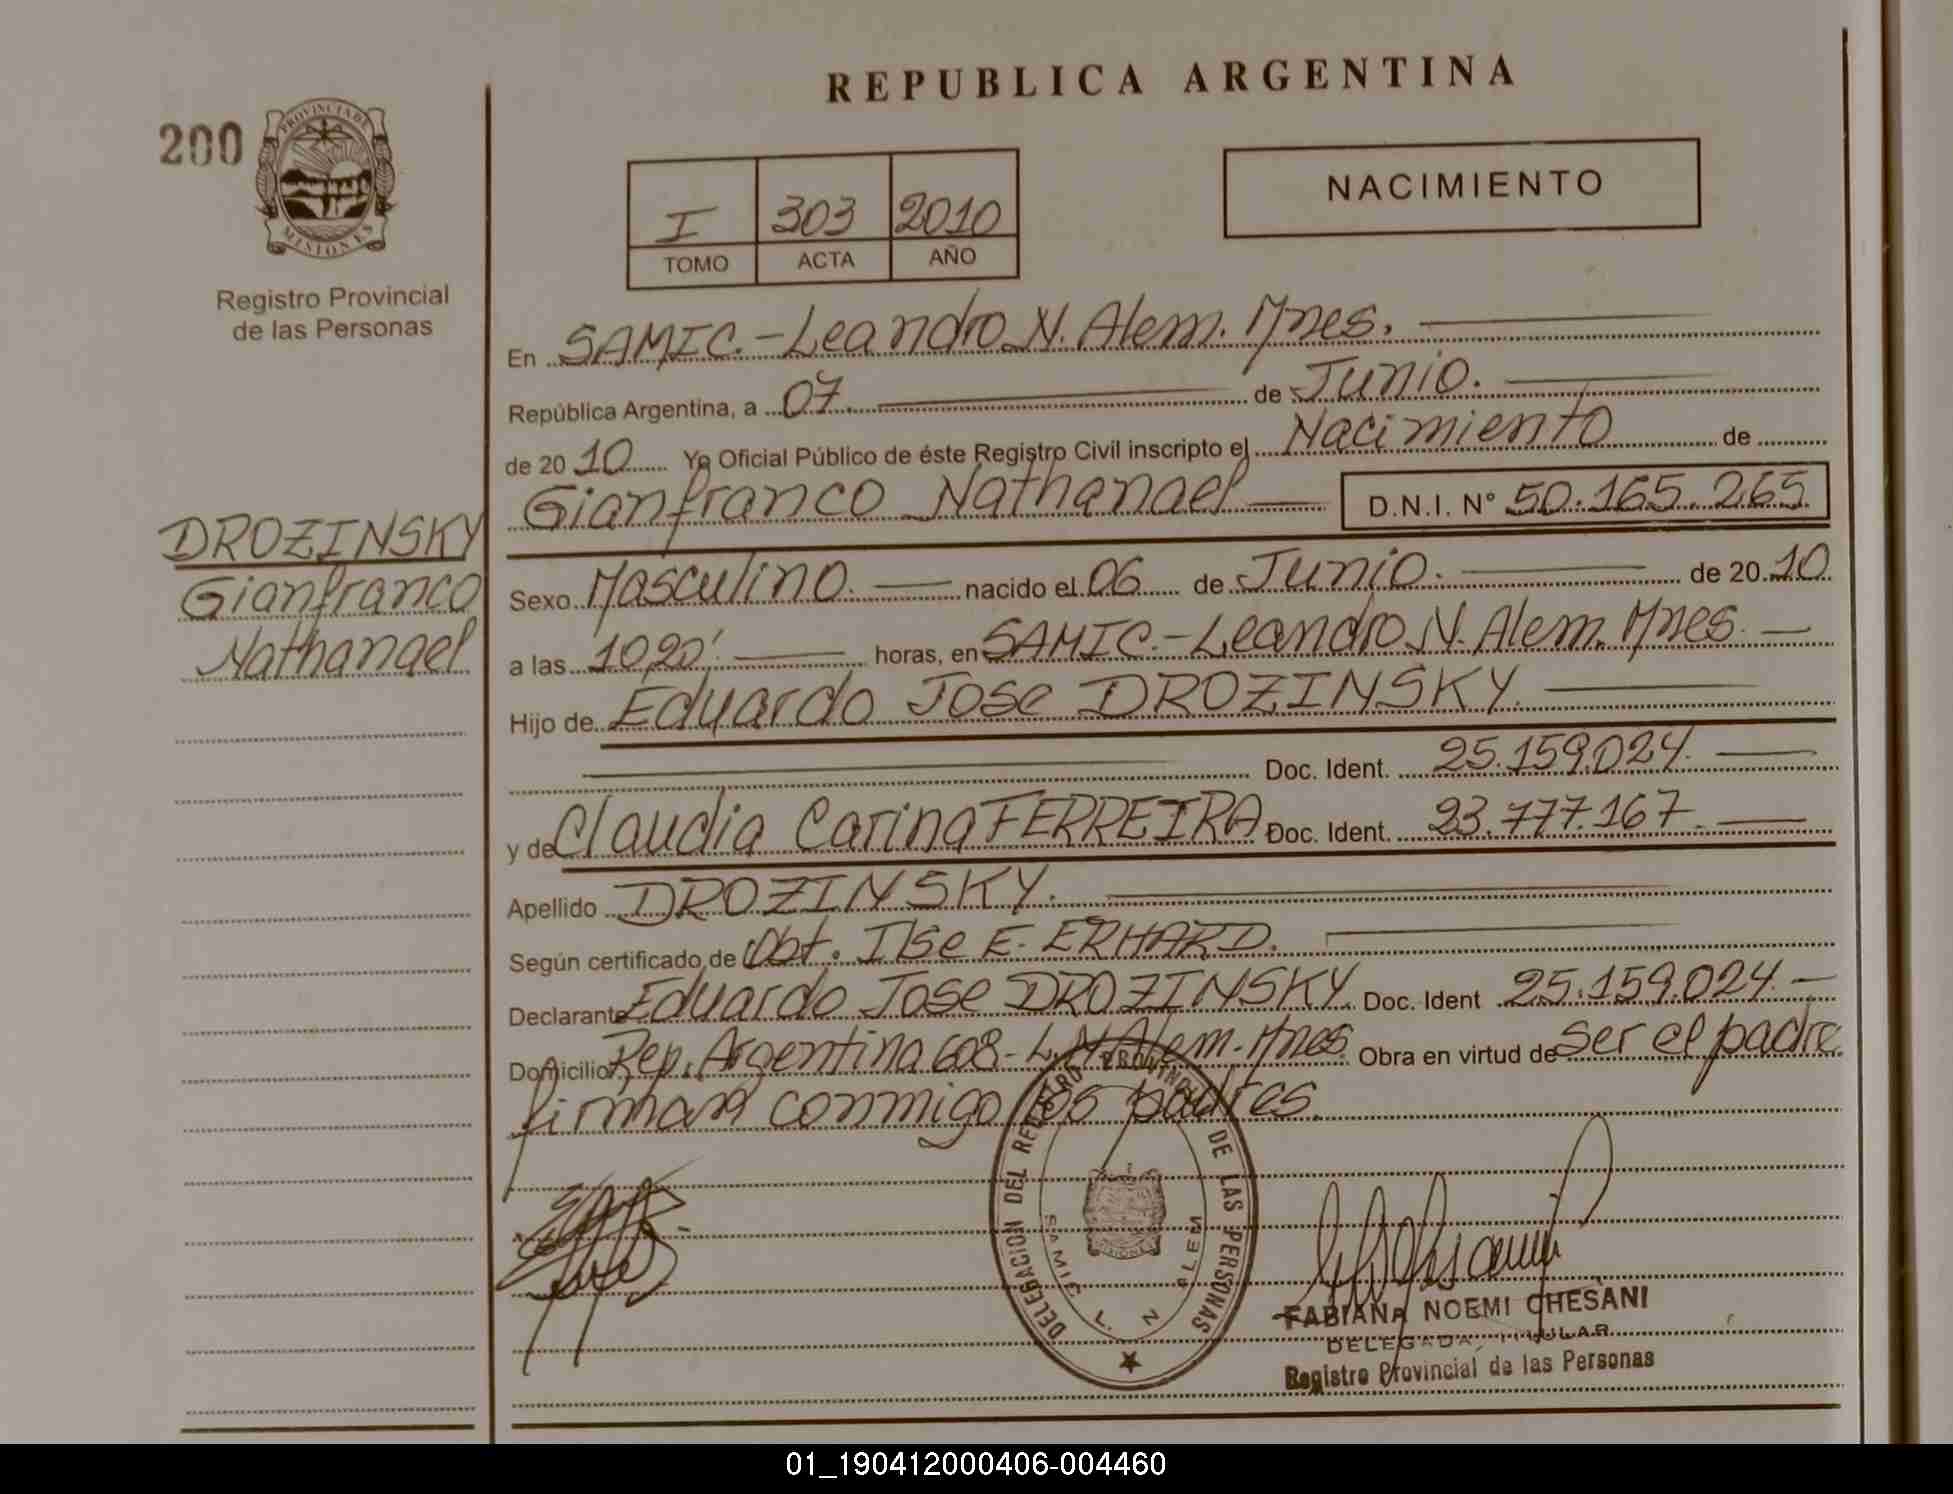 REPUBLICA ARGENTINA
200
PROVINCIA DE
MISIONES
Registro Provincial
de las Personas
I 303 2010
TOMO ACTA AÑO
NACIMIENTO
En SAMIC.-Leandro N. Alem. Mnes.
República Argentina, a 07. de Junio.
de 2010 Yo Oficial Público de éste Registro Civil inscripto el Nacimiento de
Gianfranco Nathanael D.N.I. N° 50.165.265
DROZINSKY
Gianfranco
Nathanael
Sexo Masculino. nacido el 06 de Junio. de 2010
a las 10,20' horas, en SAMIC.-Leandro N. Alem. Mnes.
Hijo de Eduardo Jose DROZINSKY.
Doc. Ident. 25.159.024.
y de Claudia Carina FERREIRA Doc. Ident. 23.777.167.
Apellido DROZINSKY.
Según certificado de Obt. Ilse E. ERHARD.
Declarante Eduardo Jose DROZINSKY. Doc. Ident 25.159.024.-
Domicilio Rep. Argentina 608-L.N.Alem-Mnes. Obra en virtud de ser el padre
firman conmigo los padres.
DELEGACION DEL REGISTRO PROVINCIAL DE LAS PERSONAS
SAMIC L. N ALEM
MISIONES
FABIANA NOEMI CHESANI
DELEGADA TITULAR
Registro Provincial de las Personas
01_190412000406-004460